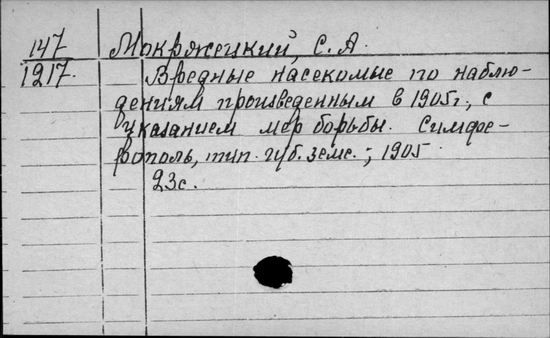 147 Мокржецкий, С.А.
1217. Вредные насекомые по наблю-
дениям произведенным в 1905г., с
указанием мер борьбы. Симфе-
рополь, тип. губ. земс.; 1905
23с.